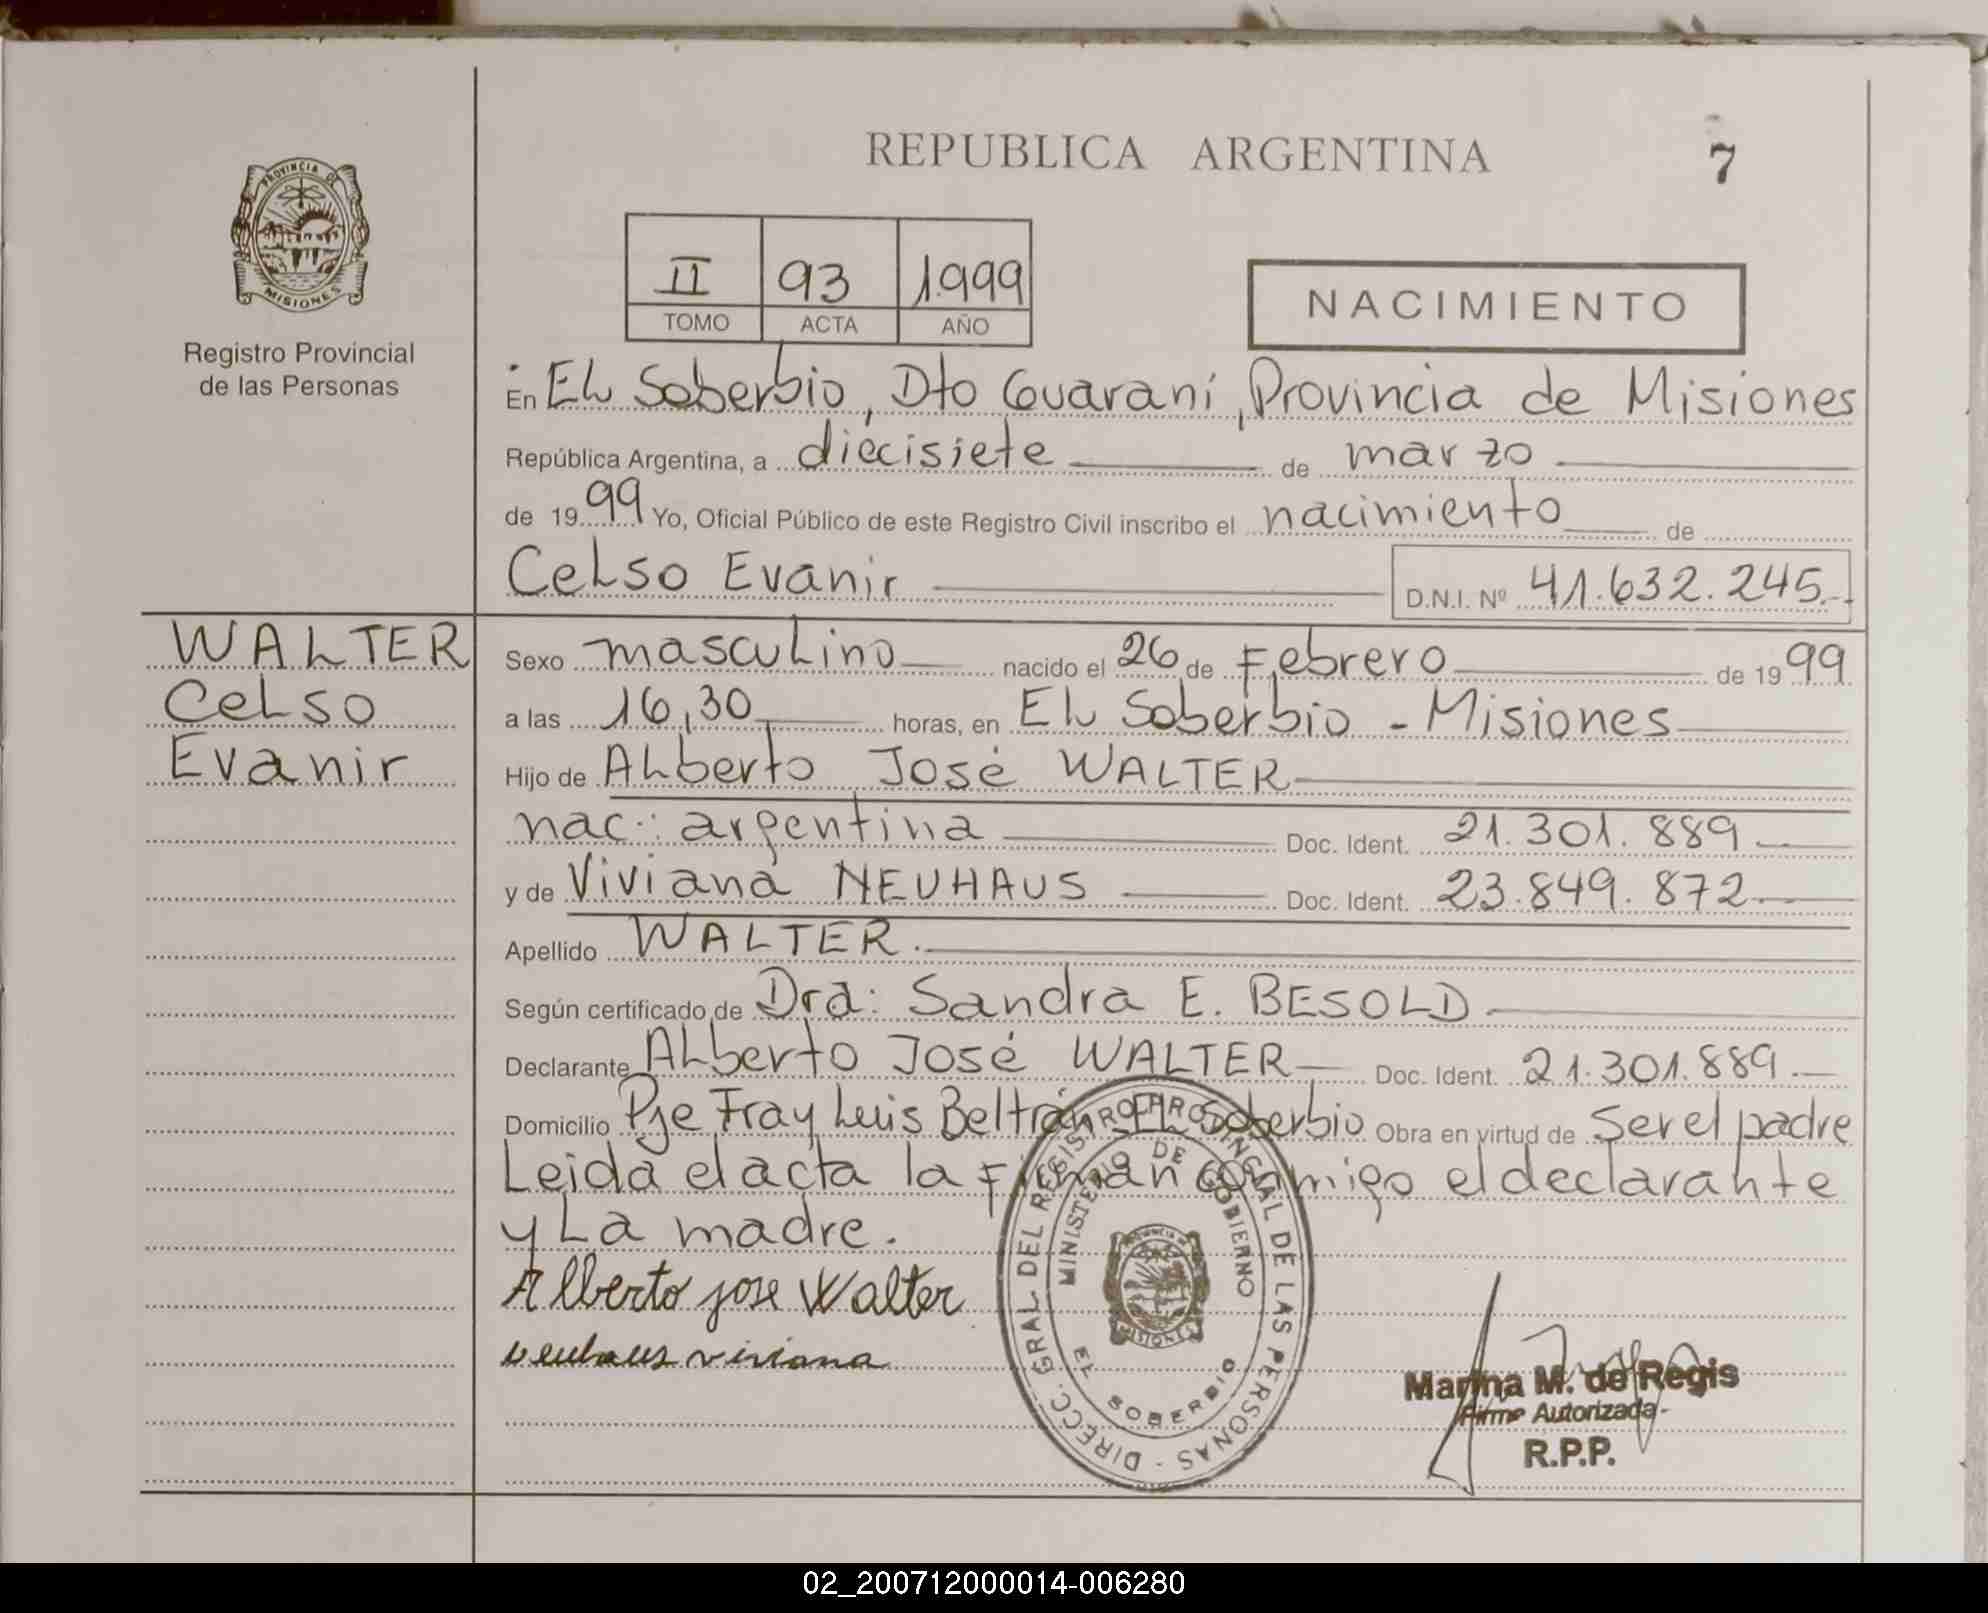 REPUBLICA ARGENTINA
7
PROVINCIA DE
MISIONES
Registro Provincial
de las Personas
II 93 1.999
TOMO ACTA AÑO
NACIMIENTO
En El Soberbio, Dto Guaraní, Provincia de Misiones
República Argentina, a diecisiete de marzo
de 1999 Yo, Oficial Público de este Registro Civil inscribo el nacimiento de
Celso Evanir D.N.I. Nº 41.632.245.-
WALTER
Celso
Evanir
Sexo masculino nacido el 26 de Febrero de 1999
a las 16,30 horas, en El Soberbio - Misiones
Hijo de Alberto José WALTER
nac.: argentina Doc. Ident. 21.301.889
y de Viviana NEUHAUS Doc. Ident. 23.849.872
Apellido WALTER.
Según certificado de Dra: Sandra E. BESOLD
Declarante Alberto José WALTER Doc. Ident. 21.301.889
Domicilio Pje Fray Luis Beltrán El Soberbio Obra en virtud de Ser el padre
Leida el acta la Firman conmigo el declarante
y La madre.
Alberto jose Walter
neuhaus viviana
DIRECC. GRAL DEL REGISTRO PROVINCIAL DE LAS PERSONAS -
MINISTERIO DE GOBIERNO
PROVINCIA DE
MISIONES
EL SOBERBIO
Marina M. de Regis
Firma Autorizada-
R.P.P.
02_200712000014-006280